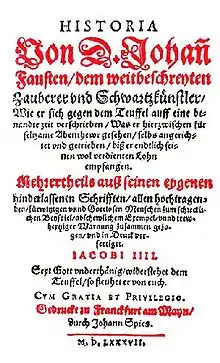 HISTORIA
Von D. Johañ
Fausten / dem weitbeschreyten
Zauberer vnd Schwartzkünstler /
Wie er sich gegen dem Teuffel auff eine be-
nandte zeit verschrieben / Was er hierzwischen für
seltzame Abenthewr gesehen / selbs angerich-
tet vnd getrieben / biß er endtlich sei-
nen wol verdienten Lohn
empfangen.
Mehrertheils auß seinen eygenen
hinderlassenen Schrifften / allen hochtragen-
den / fürwitzigen vnd Gottlosen Menschen zum schreckli-
chen Beyspiel / abscheuwlichem Exempel / vnd treuw-
hertziger Warnung zusammen gezo-
gen / vnd in Druck ver-
fertiget.
IACOBI IIII.
Seyt Gott vnderthänig / widerstehet dem
Teuffel / so fleuhet er von euch.
CVM GRATIA ET PRIVILEGIO.
Gedruckt zu Franckfurt am Mayn /
durch Johann Spies.
M. D. LXXXVII.